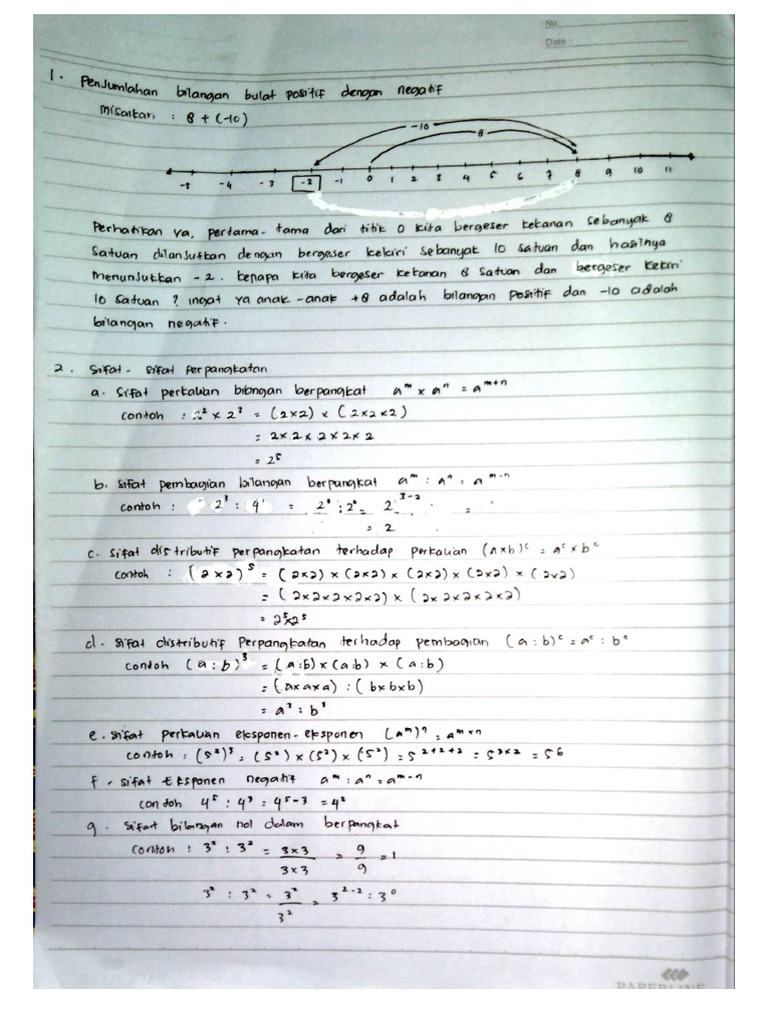 No.
Date :
1. Penjumlahan bilangan bulat positif dengan negatif
Misalkan : 8 + (-10)
-10
8
-5 -4 -3 -2 -1 0 1 2 3 4 5 6 7 8 9 10 11
Perhatikan ya, pertama-tama dari titik 0 kita bergeser kekanan sebanyak 8
satuan dilanjutkan dengan bergeser kekiri sebanyak 10 satuan dan hasilnya
menunjukkan -2. kenapa kita bergeser kekanan 8 satuan dan bergeser kekiri
10 satuan ? ingat ya anak-anak +8 adalah bilangan positif dan -10 adalah
bilangan negatif.
2. Sifat-sifat perpangkatan
a. Sifat perkalian bilangan berpangkat aᵐ × aⁿ = aᵐ⁺ⁿ
contoh : 2² × 2³ = (2×2) × (2×2×2)
= 2×2×2×2×2
= 2⁵
b. sifat pembagian bilangan berpangkat aᵐ : aⁿ = aᵐ⁻ⁿ
contoh : 2³ : 4¹ = 2³ : 2² = 2³⁻² =
= 2
c. sifat distributif perpangkatan terhadap perkalian (a×b)ᶜ = aᶜ × bᶜ
contoh : (2×2)⁵ = (2×2) × (2×2) × (2×2) × (2×2) × (2×2)
= (2×2×2×2×2) × (2×2×2×2×2)
= 2⁵×2⁵
d. sifat distributif perpangkatan terhadap pembagian (a : b)ᶜ = aᶜ : bᶜ
contoh (a : b)³ = (a:b) × (a:b) × (a:b)
= (a×a×a) : (b×b×b)
= a³ : b³
e. sifat perkalian eksponen-eksponen (aᵐ)ⁿ = aᵐˣⁿ
contoh : (5²)³ = (5²) × (5²) × (5²) = 5²⁺²⁺² = 5³ˣ² = 5⁶
f. sifat Eksponen negatif aᵐ : aⁿ = aᵐ⁻ⁿ
contoh 4⁵ : 4³ = 4⁵⁻³ = 4²
g. sifat bilangan nol dalam berpangkat
contoh : 3² : 3² = 3×3 / 3×3 = 9 / 9 = 1
3² : 3² = 3² / 3² = 3²⁻² : 3⁰
PAPERLINE